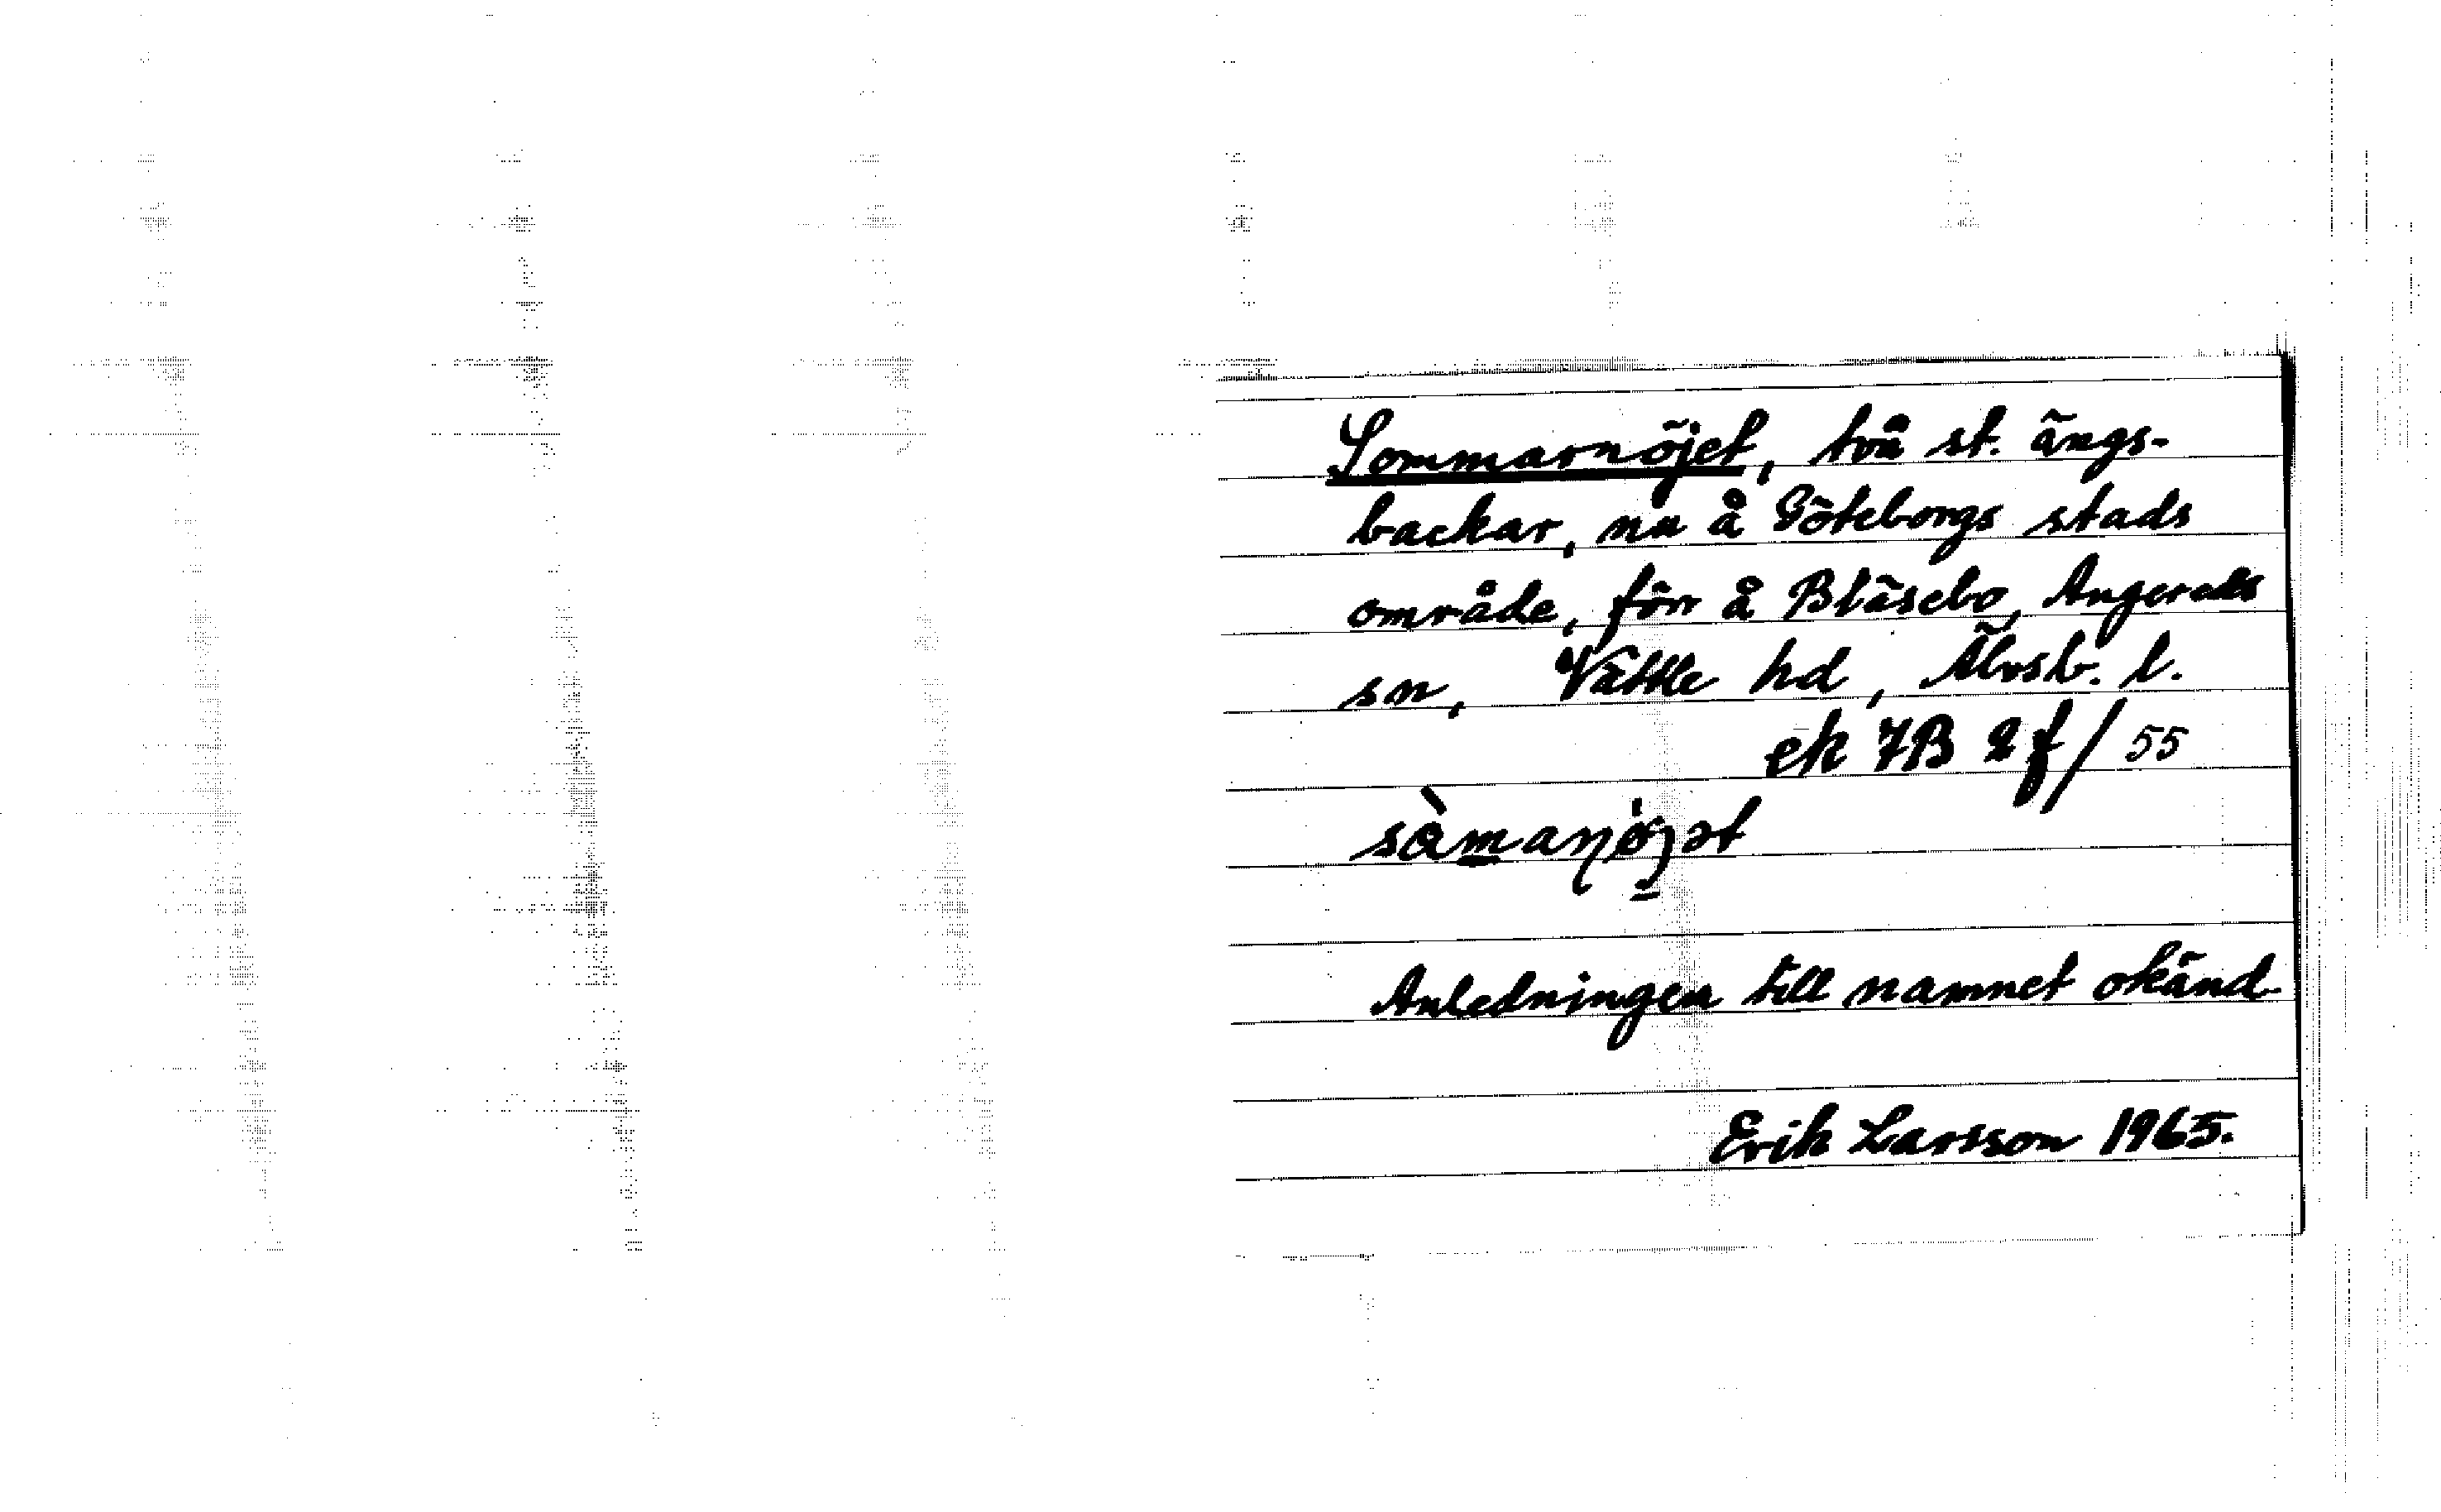 Sommarnöjet, två st. ängs-
backar, nu å Göteborgs stads
område, förr å Bläsebo, Angereds
sn, Vättle hd, Älvsb. l.
ek 7B 2f/55
sàmanöjət
Anledningen till namnet okänd.
Erik Larsson 1965.